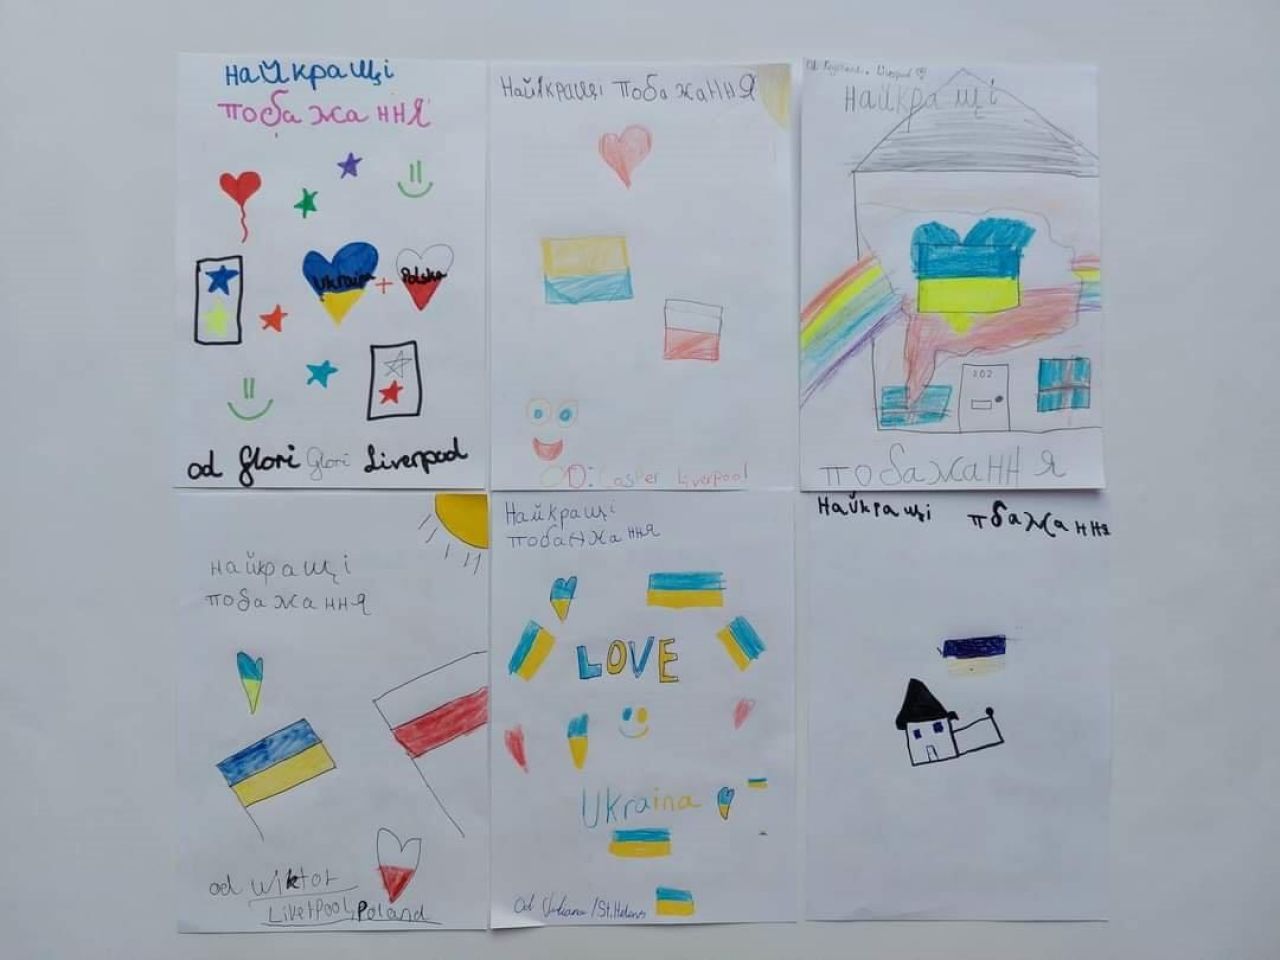 найкращі
побажання
Ukraina + Polska
od Glori Glori Liverpool
Найкращі побажання
OD: Casper Liverpool
Liverpool
найкращі
202
побажання
найкращі
побажання
od Wiktor
Liverpool, Poland
Найкращі
побажання
LOVE
Ukraina
Od Juliana / St. Helens
найкращі пбажання